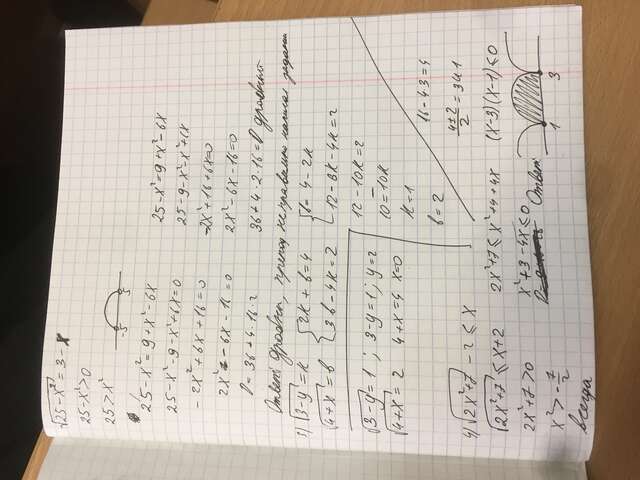 √25-x² = 3-x
25-x²>0
25>x²
-5 5
25-x²=9+x²-6x
25-x²-9-x²+6x=0
-2x²+6x+16=0
2x²-6x-16=0
D=36+4·16·2
25-x²=9+x²-6x
25-9-x²-x²+6x
-2x²+16+6x=0
2x²-6x-16=0
36+4·2·16=D дробный
Ответ: дробный, препод неправильно написал задание
3) √3-y=k
√4+x=b
{2k+b=4
{3b-4k=2
{b=4-2k
{12-6k-4k=2
12-10k=2
10=10k
k=1
b=2
√3-y=1; 3-y=1; y=2
√4+x=2 4+x=4 x=0
4) √2x²+7 -2≤x
√2x²+7≤x+2
2x²+7>0
x²>-7/2
всегда
2x²+7≤x²+4+4x
x²+3-4x≤0
16-4·3=4
4±2/2=3и1
(x-3)(x-1)≤0
Ответ:
1 3